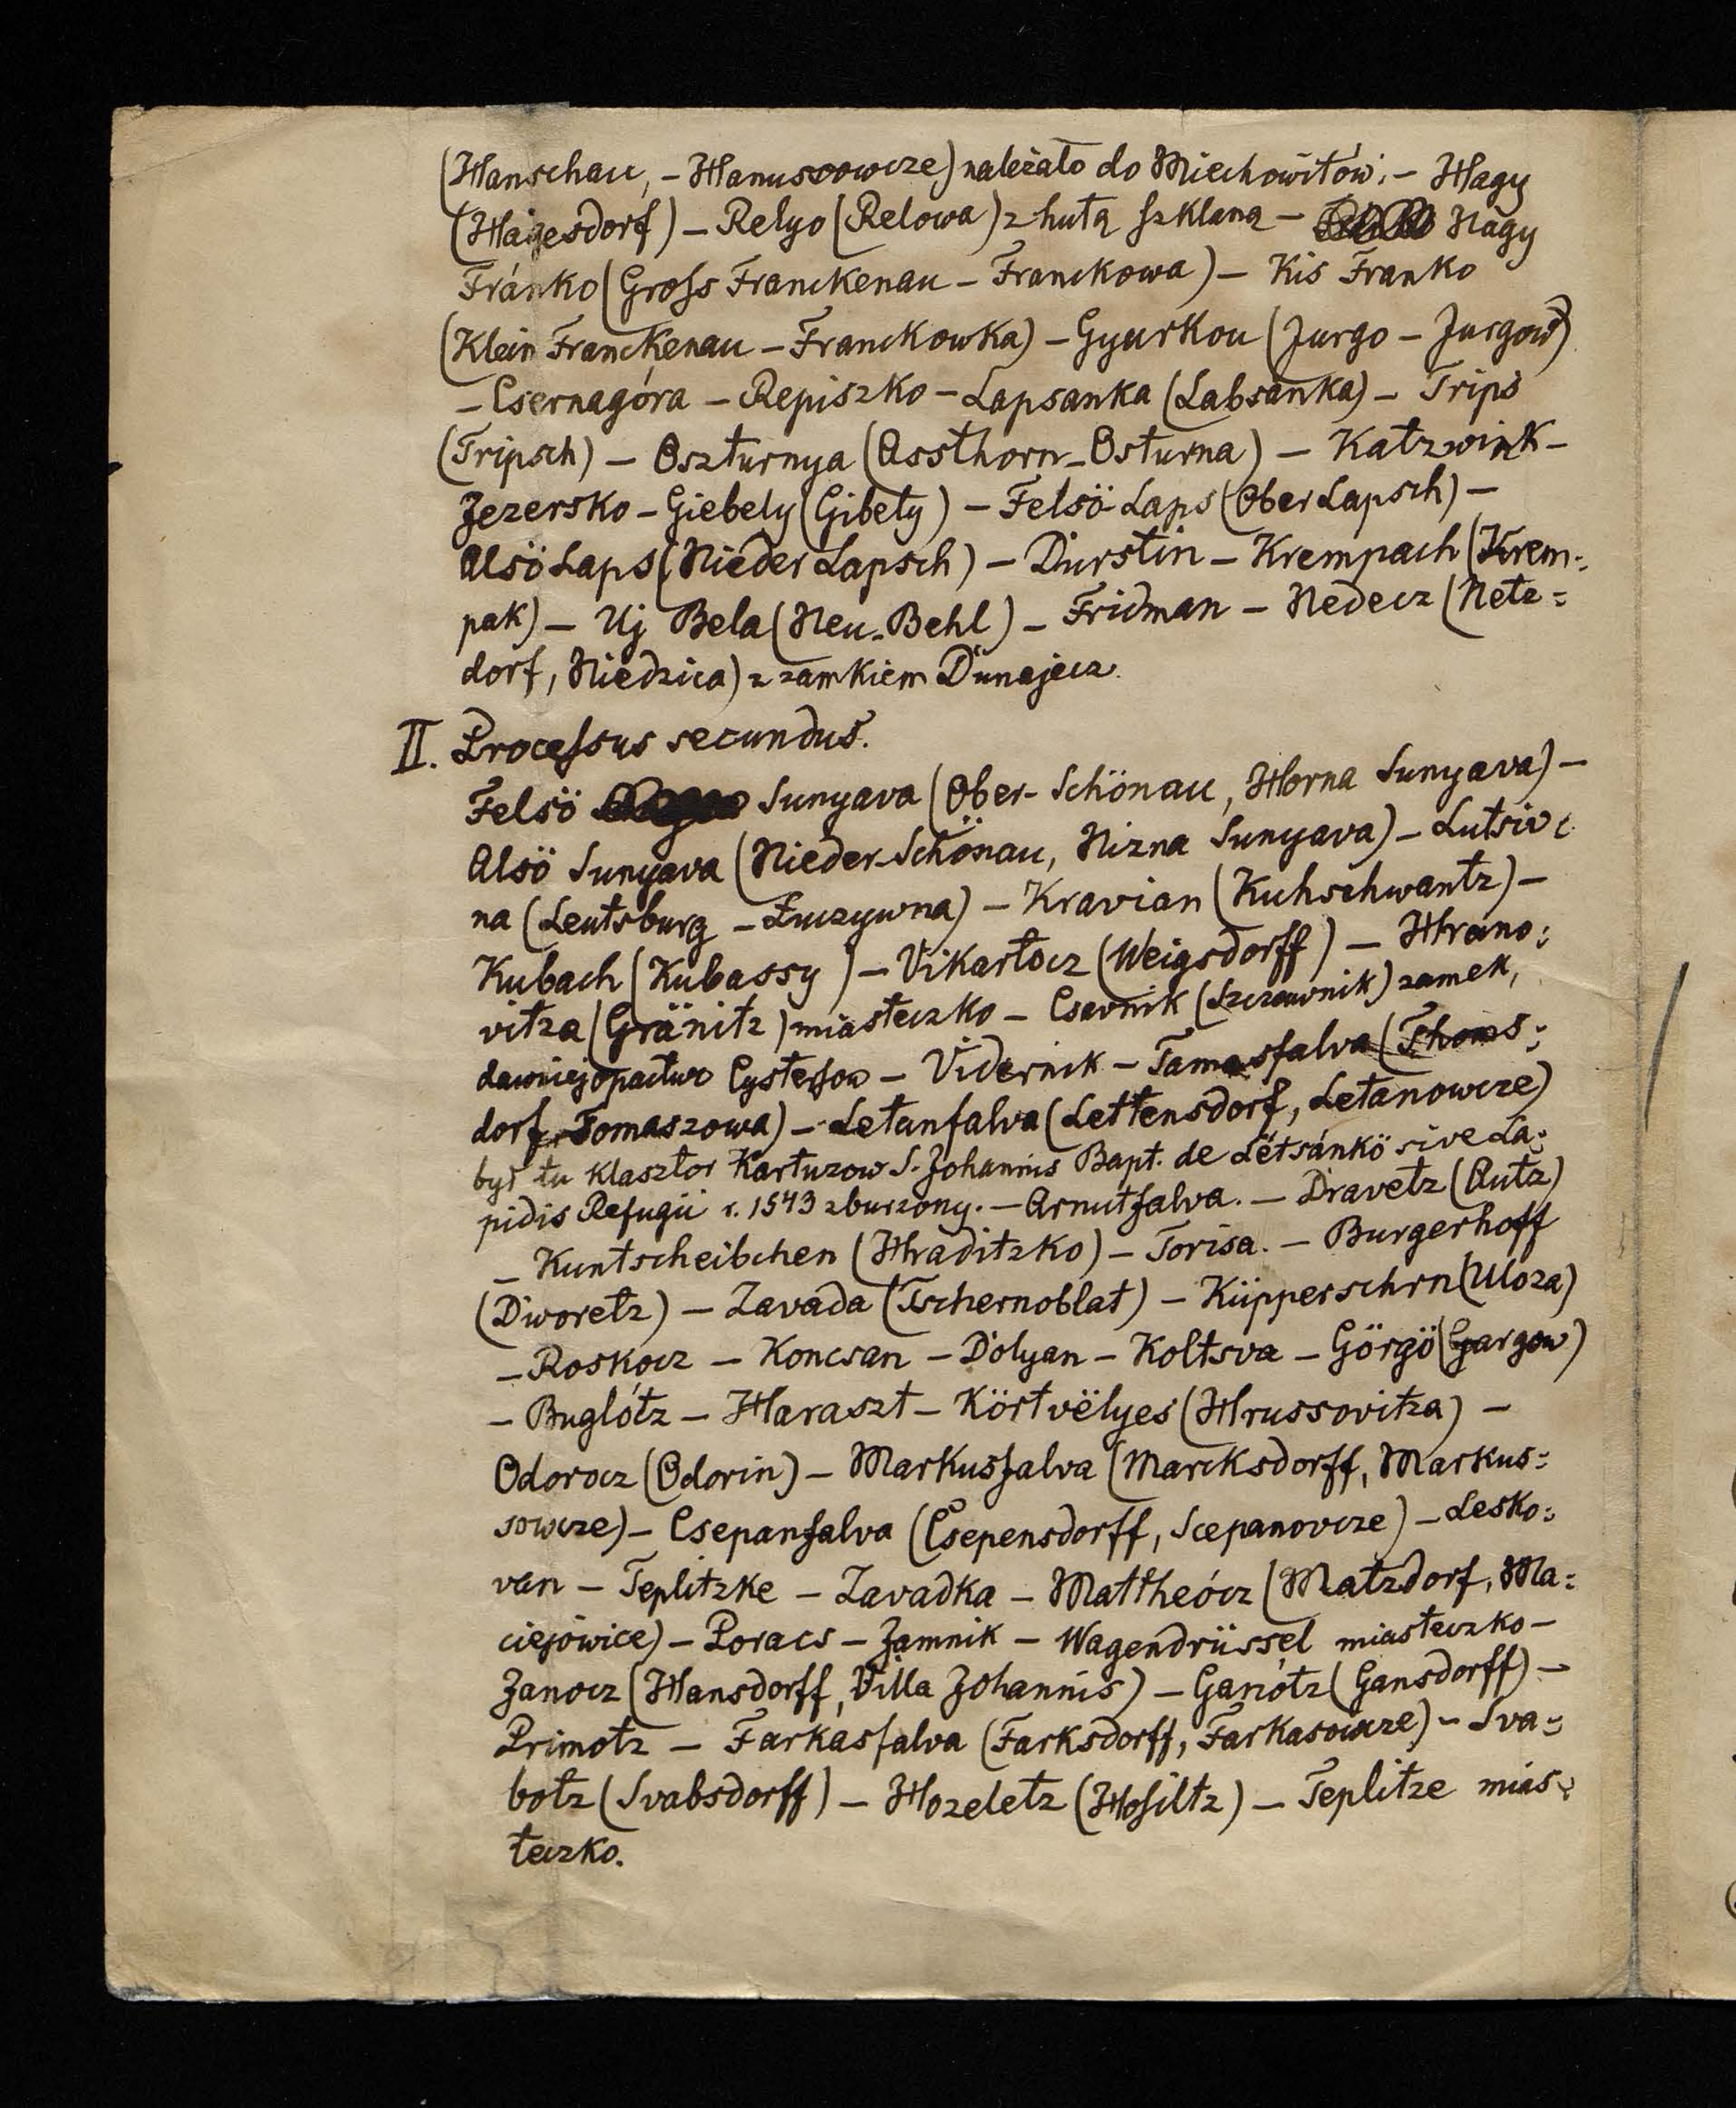 (Hanschau, – Hanusowcze) należało do Miechowitów; – Hagy
(Hagesdorf) – Relyo (Relowa) z hutą szklaną – Nagy
Fránko (Gross Franckenau – Franckowa) – Kis Franko
(Klein Franckenau – Franckowka) – Gyurkou (Jurgo – Jurgow)
– Csernagóra – Repiszko – Lapsanka (Labsanka) – Trips
(Tripsch) – Oszturnya (Assthorn – Osturna) – Katzwink –
Jezersko – Giebely (Gibely) – Felsö Laps (Ober Lapsch) –
Alsö Laps (Nieder Lapsch) – Durstin – Krempach (Krem-
pak) – Uj Bela (Neu-Behl) – Fridman – Nedecz (Netz=
dorf, Niedzica) z zamkiem Dunajecz.
II. Processus secundus.
Felsö Sunyava (Ober-Schönau, Horna Sunyava) –
Alsö Sunyava (Nieder-Schönau, Nizna Sunyava) – Lutsiv
na (Leutsburg – Łuczywna) – Kravian (Kuhschwantz) –
Kubach (Kubassy) – Vikartocz (Weigsdorff) – Hrano:
vitza (Gränitz) miasteczko – Csavnik (Szczawnik) zamek,
dawniej opactwo Cystersow – Vidernik – Tamasfalva (Thoms:
dorf, Tomaszowa) – Letanfalva (Lettensdorf, Letanowcze)
był tu klasztor Kartuzow S. Johannis Bapt. de Létsánkö sive La:
pidis Refugii r. 1543 zburzony. – Arnutfalva. – Dravetz (Autz)
– Kuntscheibchen (Hraditzko) – Torisa. – Burgerhoff
(Dworetz) – Zavada (Tschernoblat) – Küpperschrn (Uloza)
– Roskocz – Koncsan – Dolyan – Koltsva – Görgö (Gargow)
– Buglótz – Haraszt – Körtvëlyes (Hrussovitza) –
Odorocz (Odorin) – Markusfalva (Marcksdorff, Markus=
sowcze) – Csepanfalva (Csepensdorff, Scepanovcze) – Lesko:
van – Teplitzke – Zavadka – Mattheócz (Matzdorf, Ma:
ciejówice) – Poracs – Jamnik – Wagendrüssel miasteczko –
Janocz (Hansdorff, Villa Johannis) – Ganótz (Gansdorff) –
Primotz – Farkasfalva (Farksdorff, Farkasowcze) – Sva=
botz (Svabsdorff) – Hozeletz (Hosiltz) – Teplitze mias:
teczko.